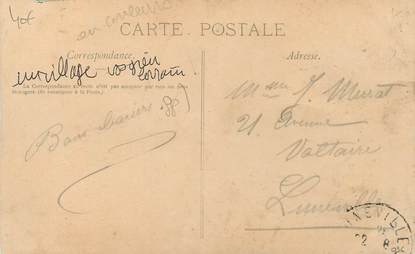 40€
en couleurs
CARTE POSTALE
Correspondance.
Adresse.
un village vosgien
Lorrain.
La Correspondance au recto n'est pas acceptée par tous les pays
étrangers (Se renseigner à la Poste.)
Bons baisers
J. Murat
21 Avenue
Voltaire
Lunéville